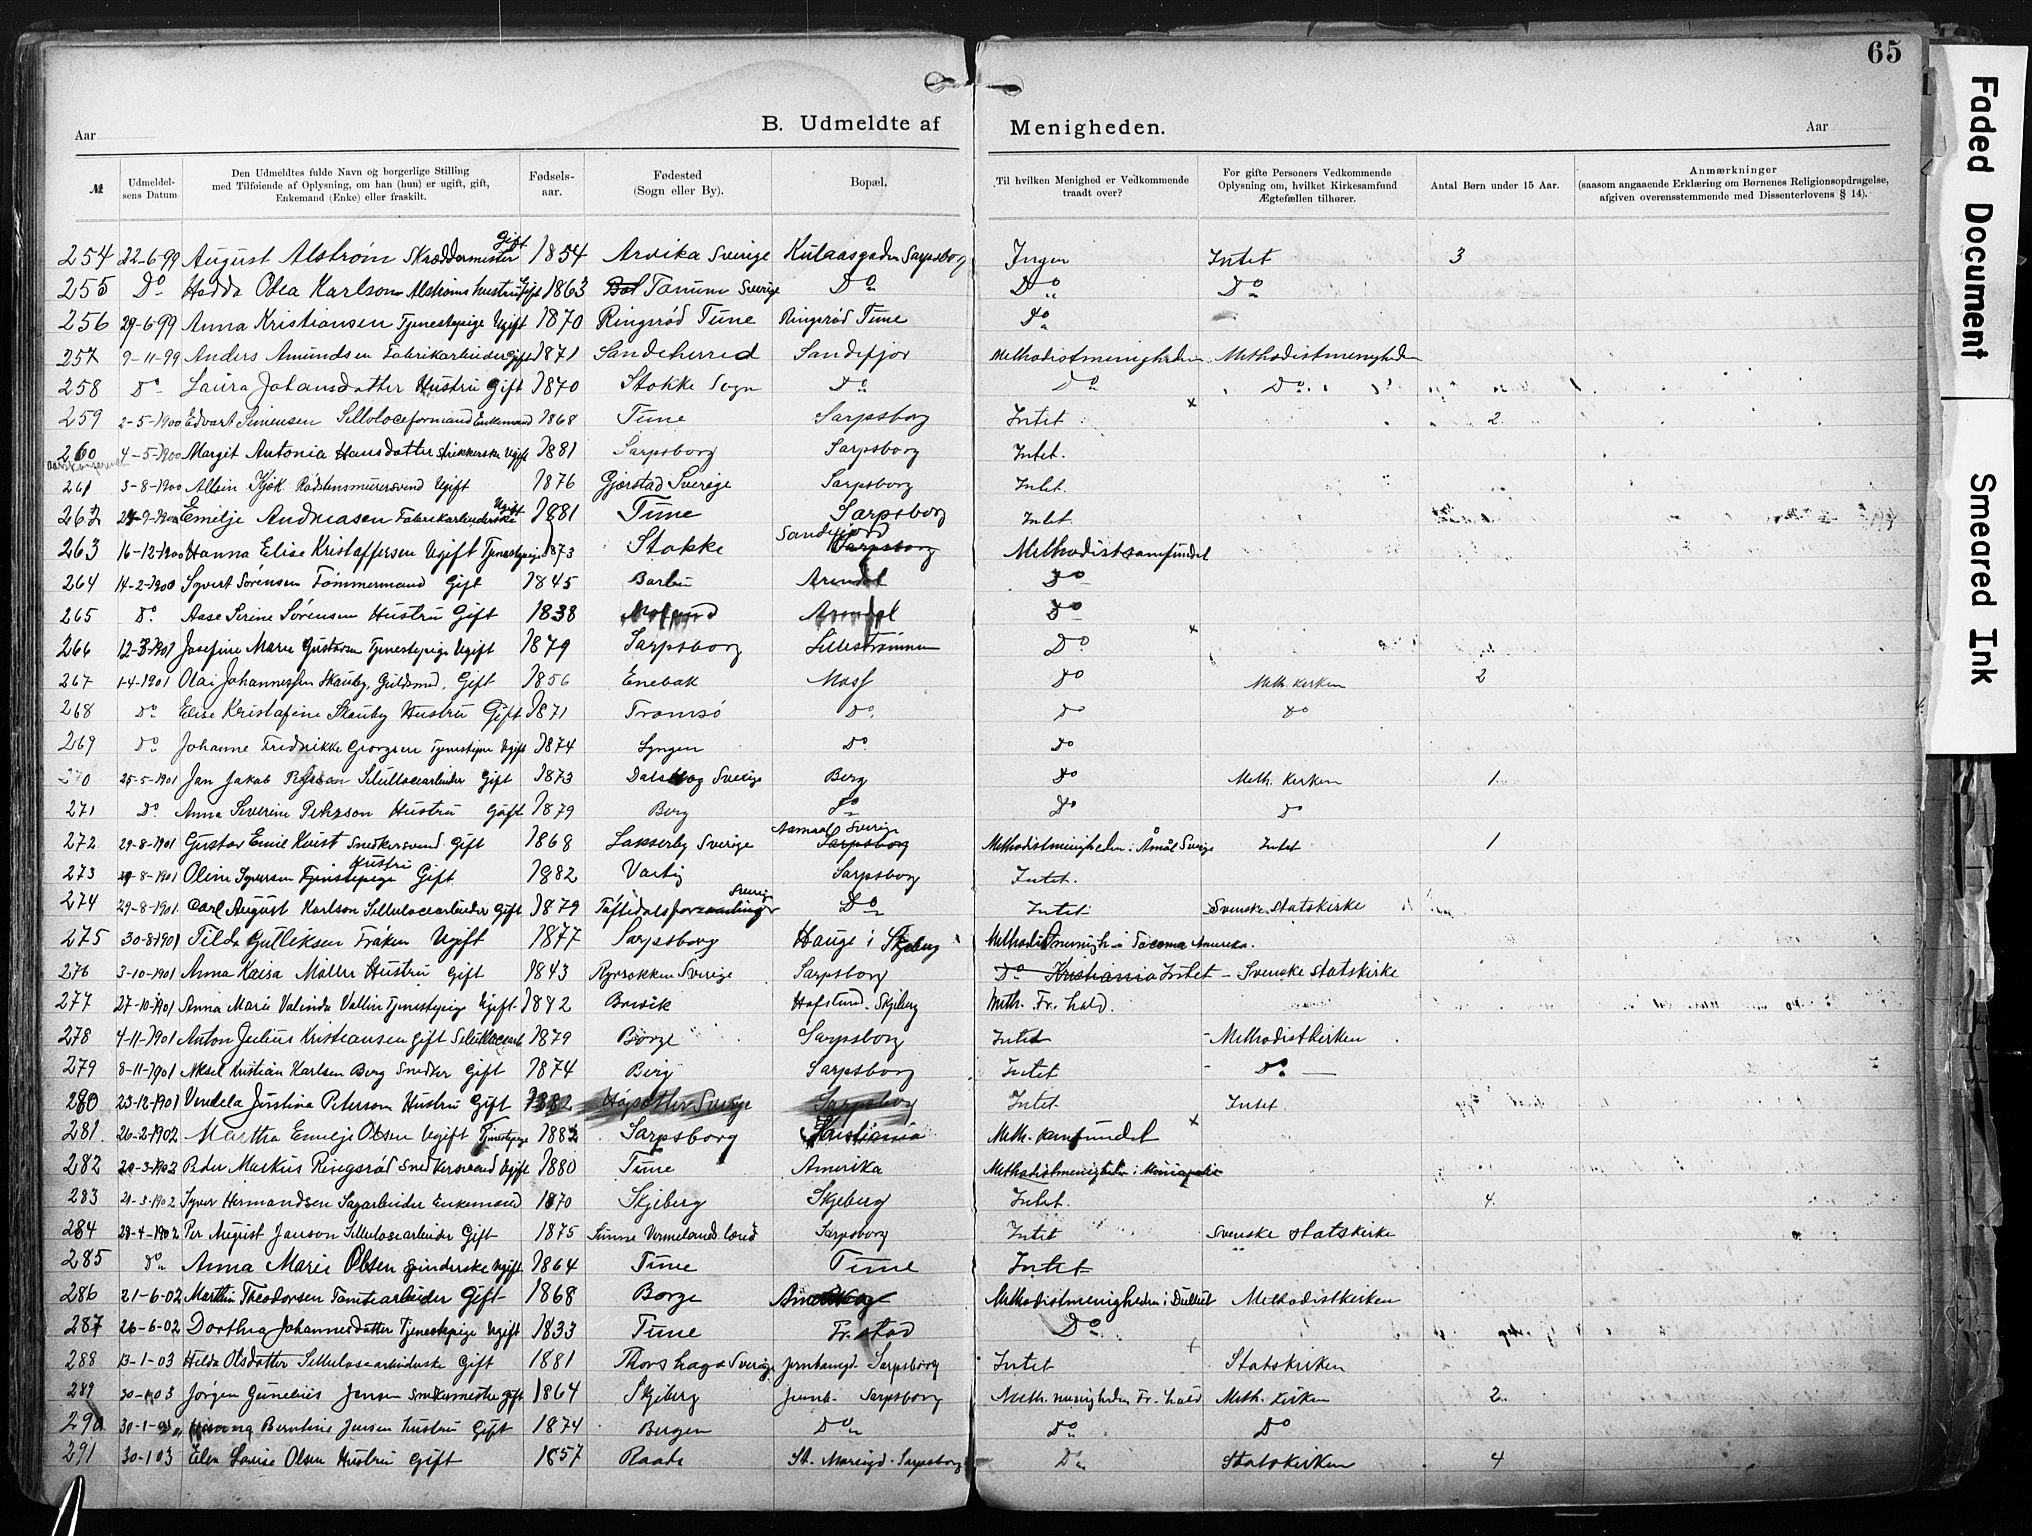 65
Faded Document
Smeared Ink
Aar
B. Udmeldte af Menigheden.
Aar
№ | Udmeldel- sens Datum | Den Udmeldtes fulde Navn og borgerlige Stilling med Tilføiende af Oplysning, om han (hun) er ugift, gift, Enkemand (Enke) eller fraskilt. | Fødsels- aar. | Fødested (Sogn eller By). | Bopæl. | Til hvilken Menighed er Vedkommende traadt over? | For gifte Personers Vedkommende Oplysning om, hvilket Kirkesamfund Ægtefællen tilhører. | Antal Børn under 15 Aar. | Anmærkninger (saasom angaaende Erklæring om Børnenes Religionsopdragelse, afgiven overensstemmende med Dissenterlovens § 14).
254 22-6-99 August Alstrøm Skræddermester Gift 1854 Arvika Sverige Kulaasgaden Sarpsborg Ingen Intet 3
255 Do Hedda Olea Karlson Alstrøms hustru Gift 1863 Tanum Sverige Do Do Do
256 29-6-99 Anna Kristiansen Tjenestepige Ugift 1870 Ringsrød Tune Ringsrød Tune Do
257 9-11-99 Anders Amundsen Fabrikarbeider Gift 1871 Sandeherred Sandefjor Methodistmenigheden Methodistmenigheden
258 Do Laura Johansdatter Hustru Gift 1870 Stokke Sogn Do Do Do
259 2-5-1900 Edvart Simensen Enkemand 1868 Tune Sarpsborg Intet x 2
260 4-5-1900 Margit Antonia Hansdatter Strikkerske Ugift 1881 Sarpsborg Sarpsborg Intet.
261 3-8-1900 Albin Ugift 1876 Gjørstad Sverige Sarpsborg Intet.
262 Emilje Andreasen Fabrikarbeiderske Ugift 1881 Tune Sarpsborg Intet
263 16-12-1900 Hanna Elise Kristoffersen Ugift Tjenestepige 1873 Stokke Sandefjord Sarpsborg Methodistsamfundet
264 14-2-1900 Syvert Sørensen Tømmermand Gift 1845 Barbu Arendal Do
265 Do Aase Serine Sørensen Hustru Gift 1838 Arendal Do
266 12-3-1901 Josefine Marie Gustavsen Tjenestepige Ugift 1879 Sarpsborg Lillestrømmen Do x
267 1-4-1901 Olai Johannessen Skauby, Guldsmed. Gift 1856 Enebak Moss Do Meth. Kirken 2
268 Do Elise Kristofine Skauby Hustru Gift 1871 Tromsø Do Do Do
269 Do Johanne Fredrikke Georgsen Tjenestepige Ugift 1874 Lyngen Do Do
270 25-5-1901 Jan Jakob Celullosearbeider Gift 1873 Sverige Berg Do Meth. Kirken 1
271 Do Anna Severine Peterson Hustru Gift 1879 Berg Do Do Do
272 29-8-1901 Gustav Emil Kvist Snedkersvend Gift 1868 Lakserby Sverige Aamaal Sverige Sarpsborg Methodistmenigheden i Åmål Sverige Intet 1
273 29-8-1901 Oline Syversen Tjenestepige Hustru Gift 1882 Varteig Sarpsborg Intet.
274 29-8-1901 Carl August Karlson Sellulosearbeider Gift 1879 Sverige Do Intet Svenske Statskirke
275 30-8-1901 Tilda Gulliksen Frøken Ugift 1877 Sarpsborg Hauge i Skjeberg Methodistmenigh. i Tacoma Amerika.
276 3-10-1901 Anna Kaisa Møller Hustru Gift 1843 Sverige Sarpsborg Do Kristiania Intet - Svenske Statskirke
277 27-10-1901 Anna Marie Valinda Vallin Tjenestepig Ugift 1882 Brevik Hafslund. Skjeberg Meth. Fr. hald.
278 4-11-1901 Anton Julius Kristiansen Gift 1879 Borge Sarpsborg Intet - Methodistkirken
279 8-11-1901 Aksel Kristian Karlsen Berg Snedker Gift 1874 Berg Sarpsborg Intet - Do
280 23-12-1901 Vendela Justina Peterson Hustru Gift 1882 Sverige Sarpsborg Intet Intet
281. 26-2-1902 Martha Emilje Olsen Ugift Tjenestepige 1882 Sarpsborg Kristiania Meth. samfundet x
282 20-3-1902 Peder Markus Ringsrød Snedkersvend Ugift 1880 Tune Amerika Methodistmenigheden i
283 21-3-1902 Syver Hermandsen Sagarbeider Enkemand 1870 Skjeberg Skjeberg Intet. 4.
284 29-4-1902 Per August Janson Sellulosearbeider Gift 1875 Sunne Vermelands Sarpsborg Intet Svenske Statskirke
285 Do Anna Marie Olsen Spinderske Ugift 1864 Tune Tune Intet
286 21-6-02 Marthin Theodorsen Tomtearbeider Gift 1868 Borge Methodistmenigheden i Methodistkirken
287 26-6-02 Dorthea Johannesdatter Tjenestepige Ugift 1833 Tune Fr. stad Do
288 13-1-03 Hilda Olsdatter Sellulosearbeiderske Gift 1881 Thorshaga Sverige Jernbanegd. Sarpsborg Intet Statskirken
289 30-1-03 Jørgen Gunelius Jensen Snedkermester Gift 1864 Skjeberg Jernb. Sarpsborg Meth. menigheden Fr. hald Meth. Kirken 2
290 Berntine Jensen hustru Gift 1874 Bergen Do Do Do
291 30-1-03 Elen Lovise Olsen Hustru Gift 1857 Raade St. Mariegd. Sarpsborg Do Statskirken 4